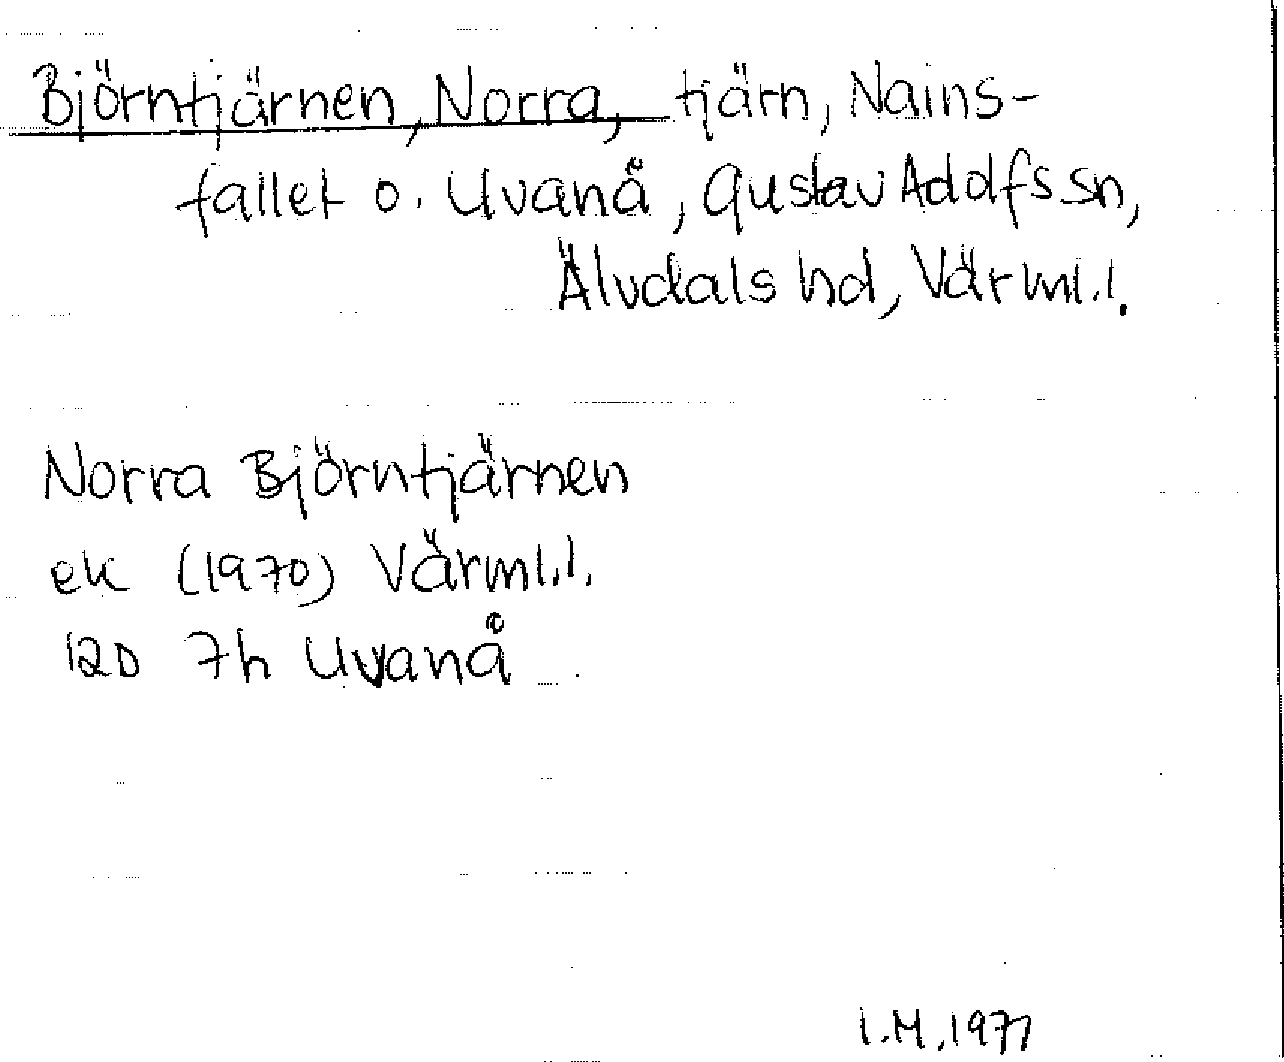 Björntjärnen, Norra, tjärn, Nains-
fallet o. Uvanå, Gustav Adolfs sn,
Älvdals hd, Värml.l.
Norra Björntjärnen
ek (1970) Värml.l.
12D 7h Uvanå
I.M, 1977